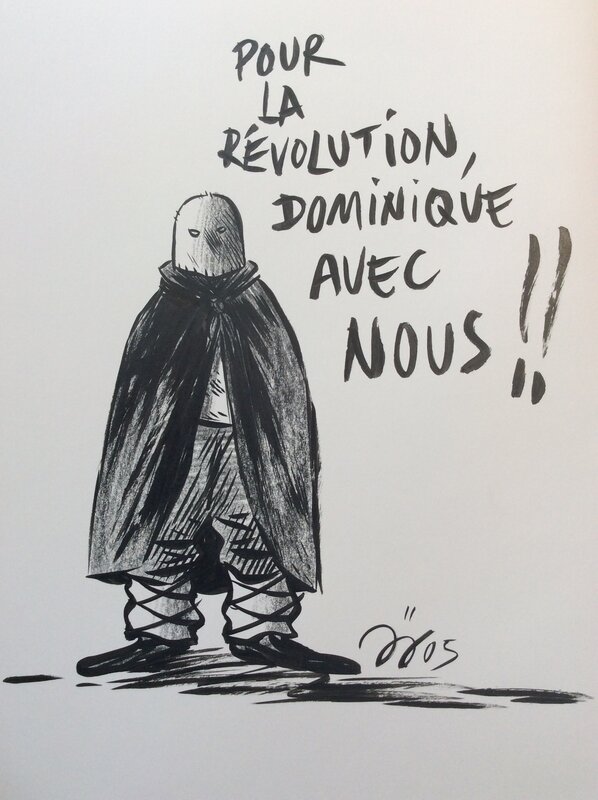 POUR
LA
RÉVOLUTION,
DOMINIQUE
AVEC
NOUS!!
05